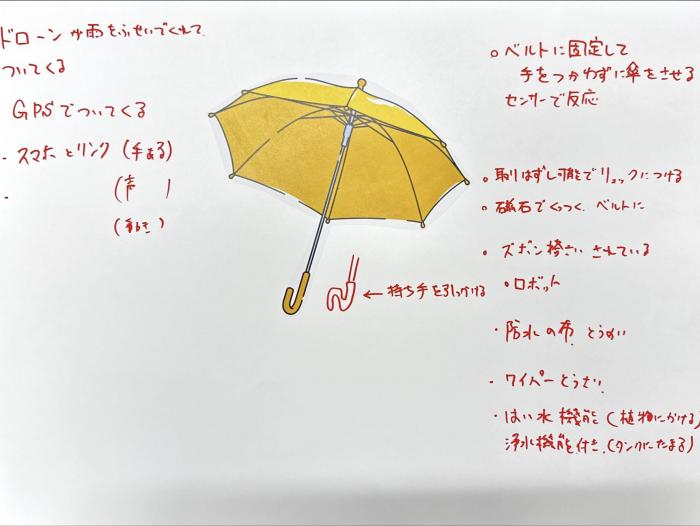 ドローンが雨をふせいでくれて
ついてくる
GPSでついてくる
・スマホとリンク(手ある)
・(声)
(動き)
○ベルトに固定して
手をつかわずに傘をさせる
センサーで反応
○取りはずし可能でリュックにつける
○磁石でくっつく ベルトに
・ズボン
されている
・ロボット
← 持ち手を引っかける
・防水の布
・ワイパーとうさい
・はい水機能(植物にかける)
浄水機能付き(タンクにたまる)